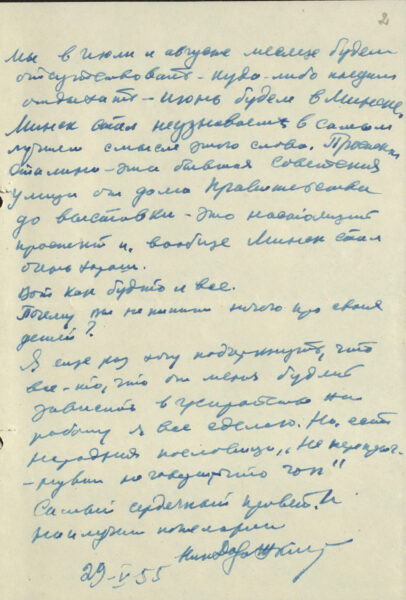 2
Мы в июле и августе месяце будем
отсутствовать - куда-либо поедем
отдыхать - июнь будем в Минске.
Минск стал неузнаваем в самом
лучшем смысле этого слова. Проспект
Сталина - это бывшая Советская
улица от дома Правительства
до выставки - это настоящий
проспект и вообще Минск стал
очень хорош.
Вот как будто и все.
Почему ты не пишешь ничего про своих
детей?
Я еще раз хочу подчеркнуть, что
все-то, что от меня будет
зависеть в устройстве на
работу я все сделаю. Но есть
народная пословица „Не
гоп"
Самый сердечный привет и
наилучшие пожелания
29-V-55